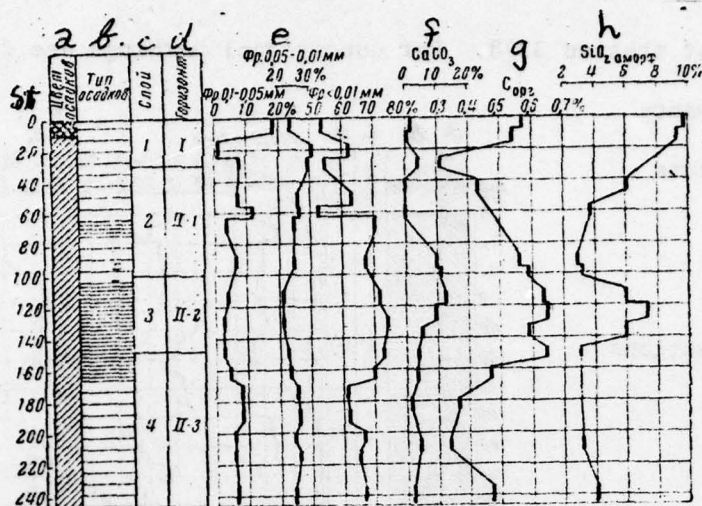 a b c d e f g h
Цвет осадков
Тип осадков
Слой
Горизонт
Фр.0,05-0,01мм
20 30%
Фр.0,1-0,05мм
0 10 20%
Фр<0,01мм
50 60 70 80%
CaCO₃
0 10 20%
Сорг
0,3 0,4 0,5 0,6 0,7%
SiO₂ аморф
2 4 6 8 10%
0
20
40
60
80
100
120
140
160
180
200
220
240
1 I
2 II-1
3 II-2
4 II-3